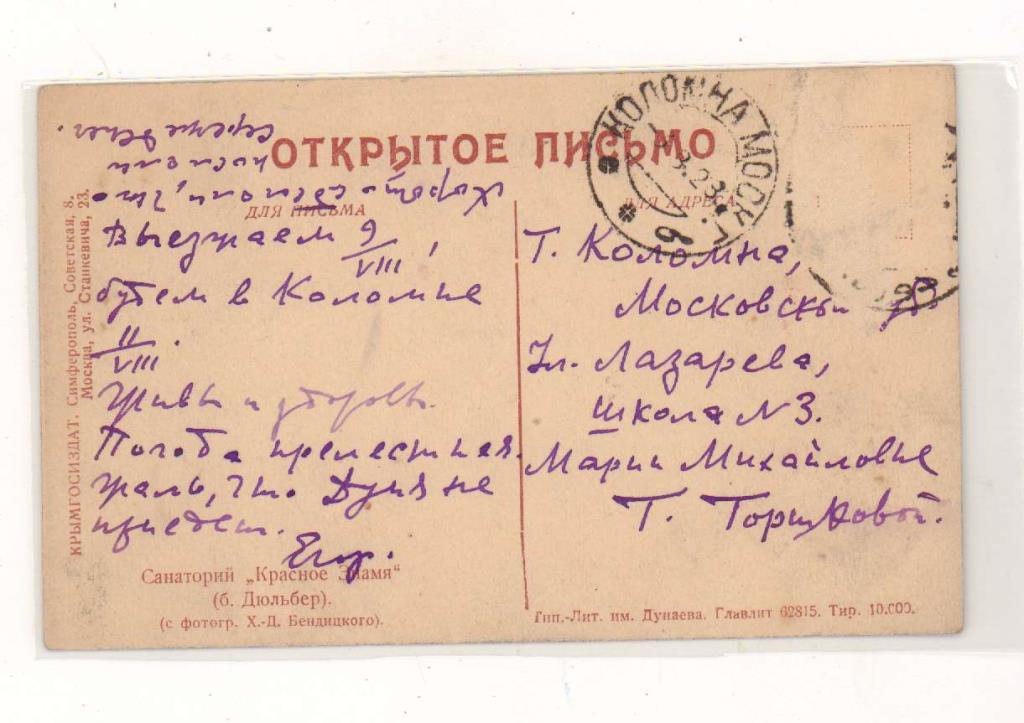 ОТКРЫТОЕ ПИСЬМО
ДЛЯ ПИСЬМА
ДЛЯ АДРЕСА
КОЛОМНА МОСК
Выезжаем 9/VIII,
будем в Коломне
11/VIII.
Живы и здоровы.
Погода прелестная.
Жаль, что Дуня не
приедет.
Егор.
Т. Коломна,
Московской
Ул. Лазарева,
Школа N3.
Марии Михайловне
Т. Торшковой.
Санаторий „Красное Знамя"
(б. Дюльбер).
(с фотогр. Х.-Д. Бендицкого).
Тип.-Лит. им. Дунаева. Главлит 62815. Тир. 10.000.
КРЫМГОСИЗДАТ. Симферополь, Советская, 8.
Москва, ул. Станкевича, 23.